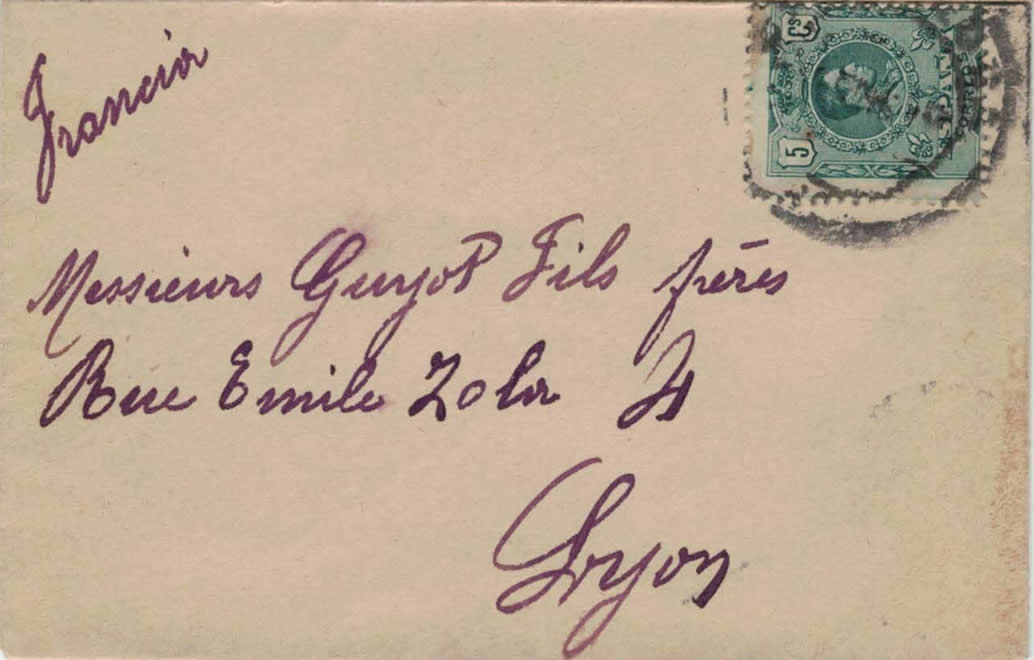 Francia
Messieurs Guyot Fils frères
Rue Emile Zola 4
Lyon
5
Cs